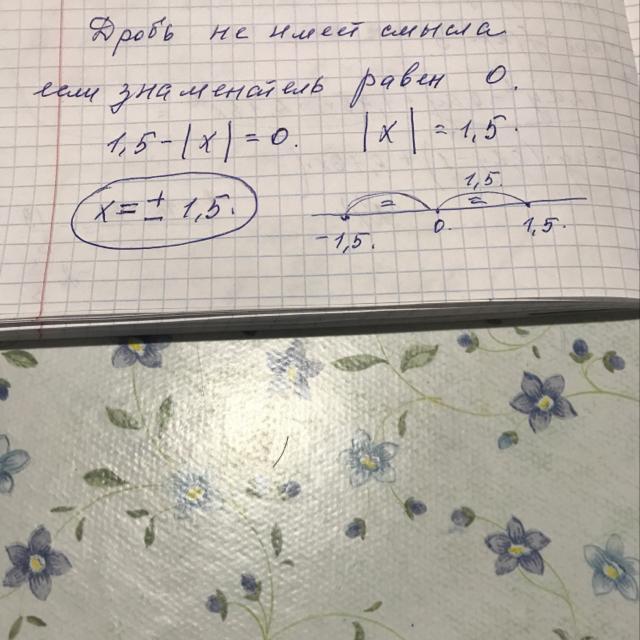 Дробь не имеет смысла
если знаменатель равен 0.
1,5 - |x| = 0. |x| = 1,5.
x = ± 1,5.
1,5
= =
-1,5. 0. 1,5.